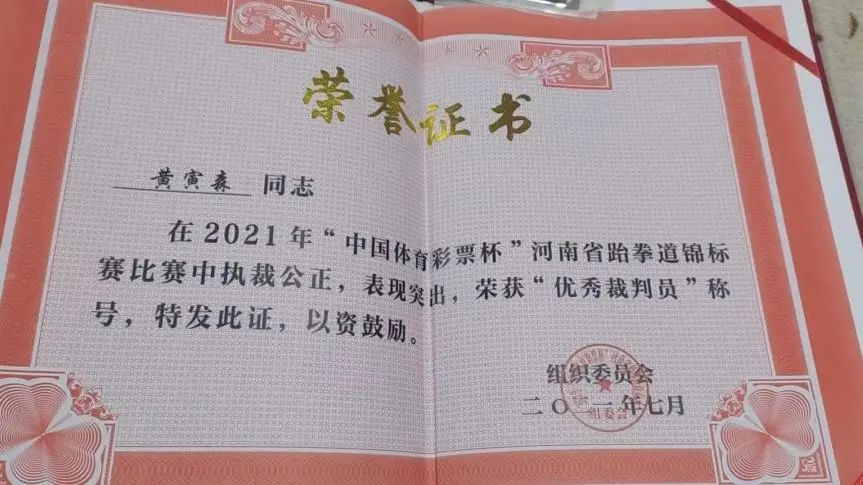 荣誉证书
黄寅森 同志
在2021年“中国体育彩票杯”河南省跆拳道锦标
赛比赛中执裁公正，表现突出，荣获“优秀裁判员”称
号，特发此证，以资鼓励。
组织委员会
二〇二一年七月
组委会